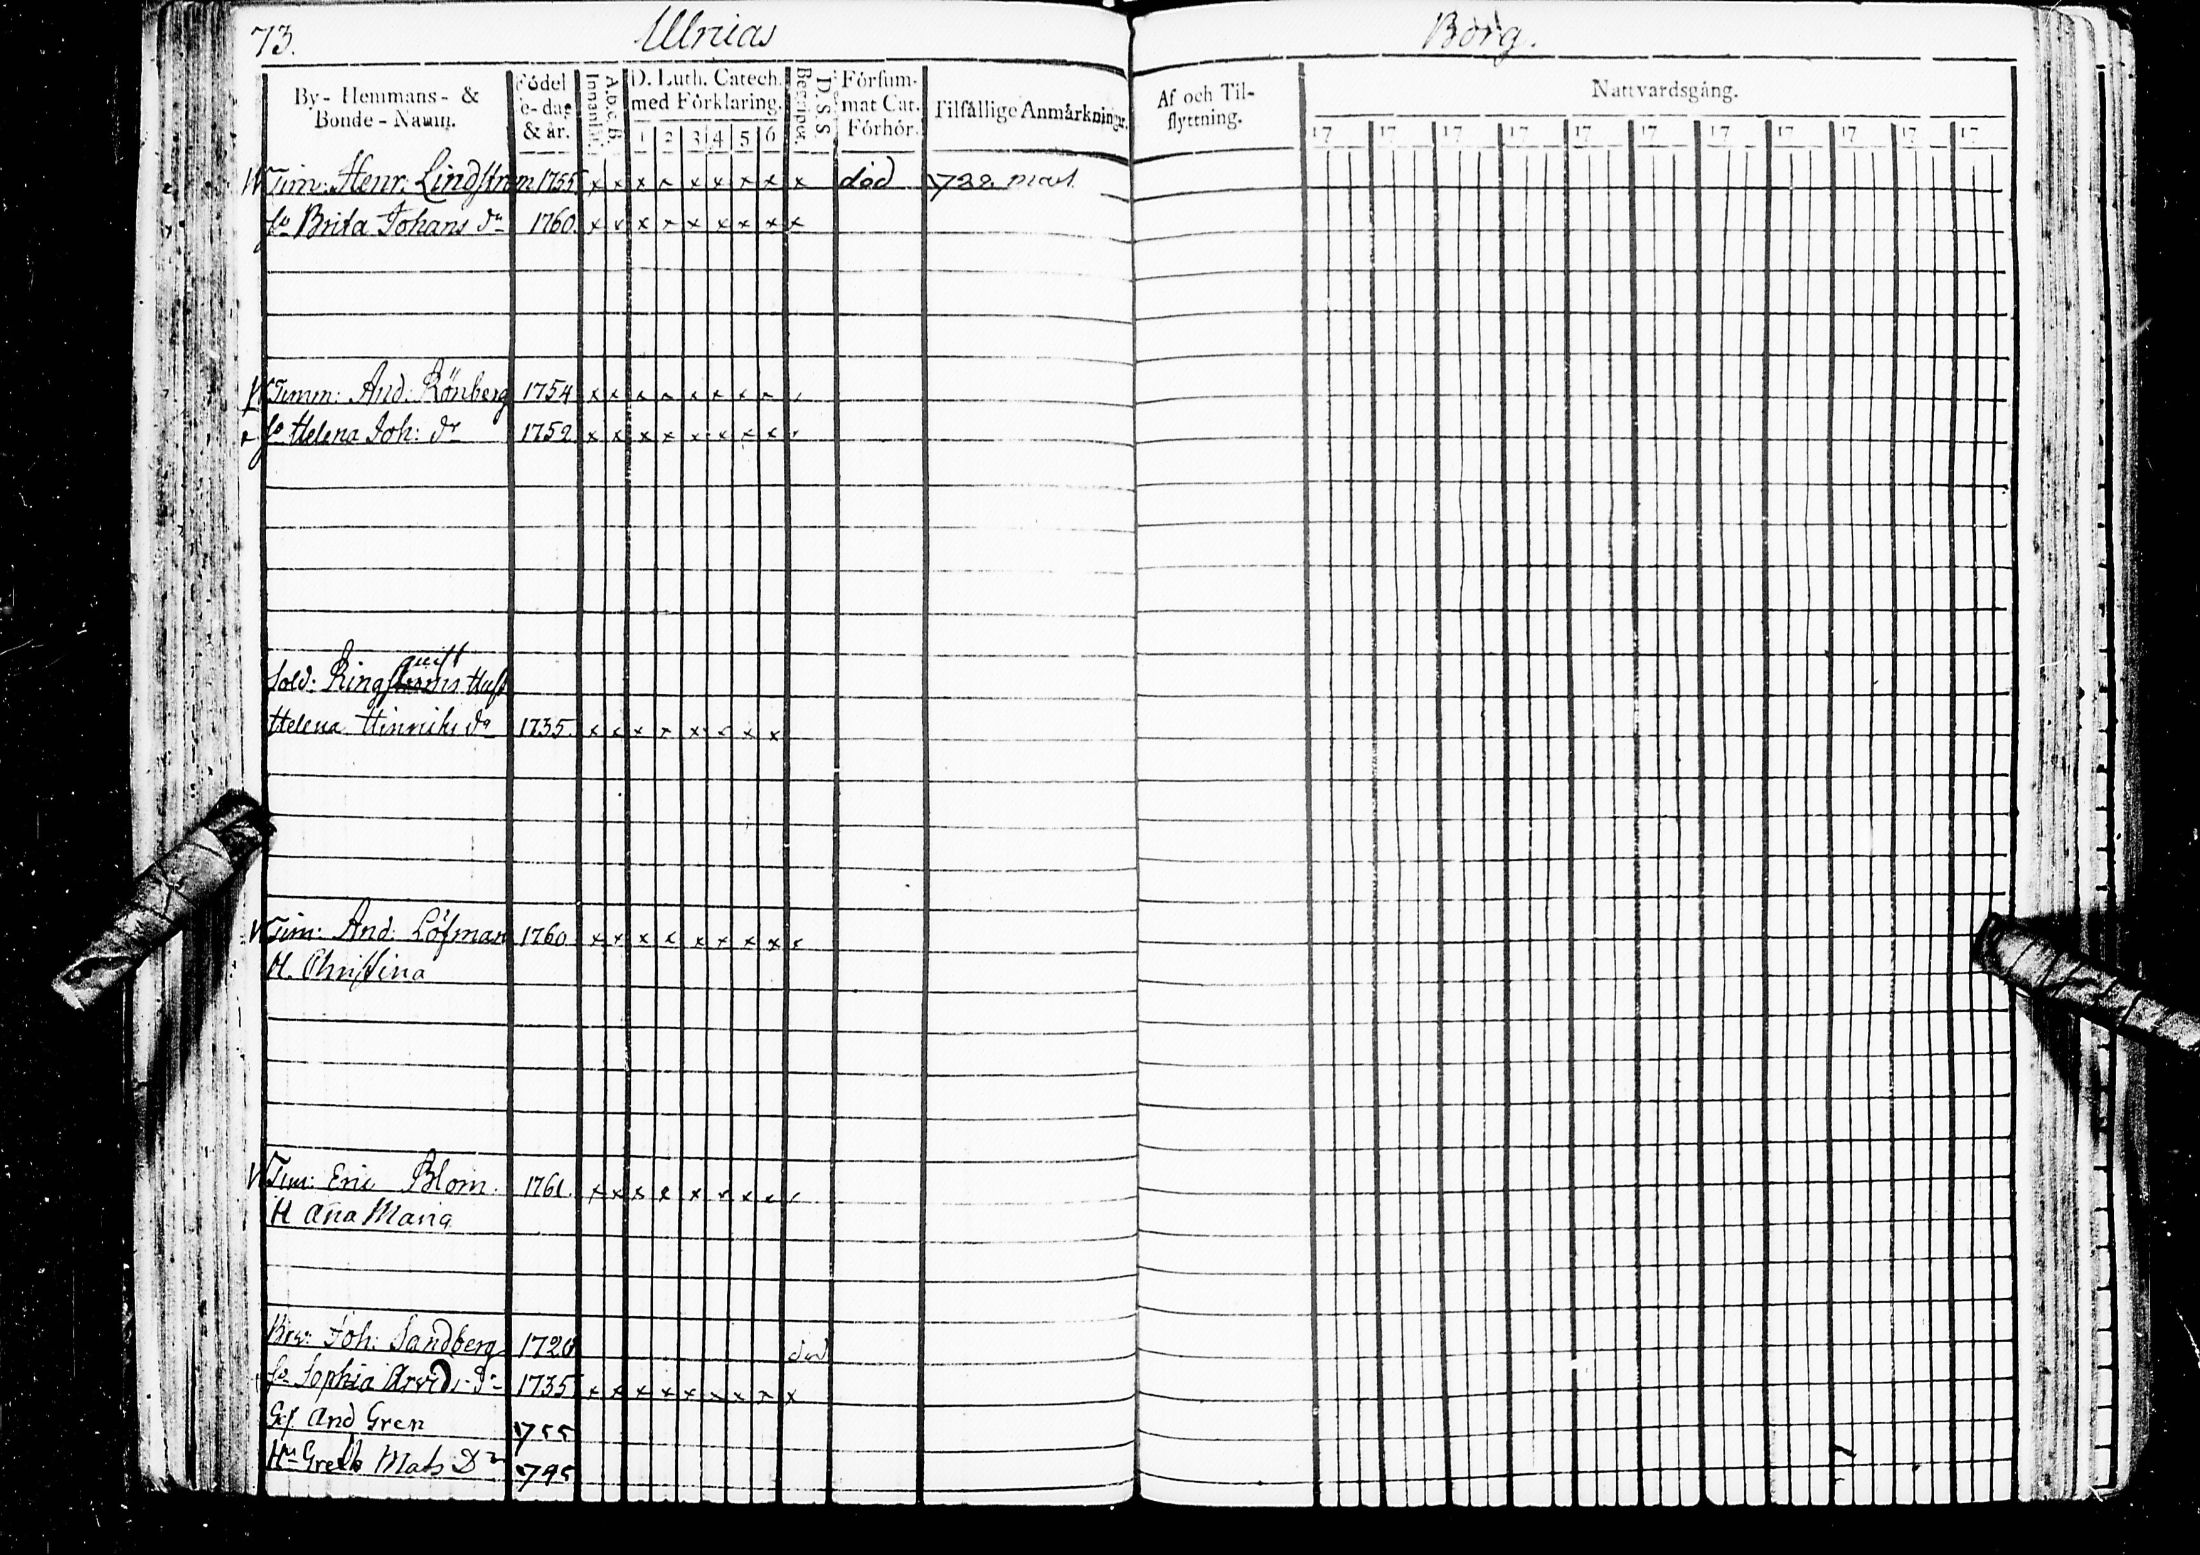 73. Ulricas Borg.
By- Hemmans- & Bonde-Namn. Födel e-dag & år. Innanläs. A.b.c.B. D. Luth. Catech. med Förklaring. 1 2 3 4 5 6 Begriper. D.S.S. Försummat Cat. Förhör. Tilfällige Anmärkningar. Af och Tilflyttning. Nattvardsgång.
17 17 17 17 17 17 17 17 17 17 17
Tim: Henr: Lindström 1755 x x x x x x x x x död
Brita Johans dr 1760 x x x x x x x x x
Timm: And: Rönberg 1754 x x x x x x x x
Helena Joh: dr 1752 x x x x x x x x
Sold: Ring quist
Helena Hinriks dr 1735 x x x x x x x x
Tim: And: Löfman 1760 x x x x x x x x x
H. Christina
Tim: Eric Blom 1761 x x x x x x x x
H Ana Maria
Joh: Sandberg 1720 död
Sophia Arvids dr 1735 x x x x x x x x x
And Gren 1755
Mats Dr